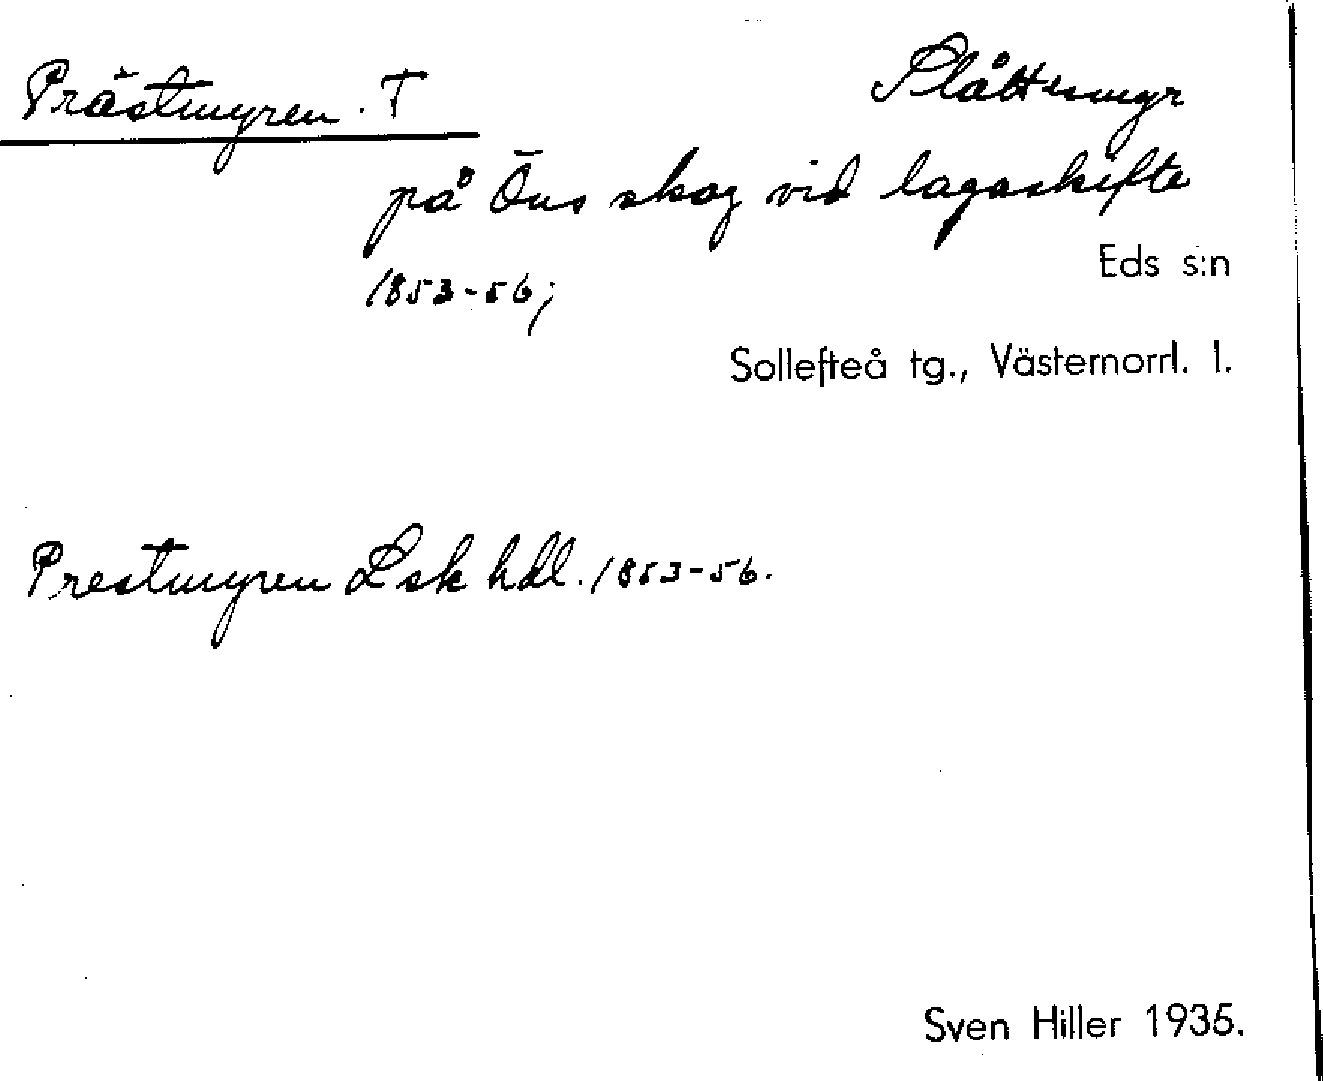 Prästmyren. T
Slåttesmyr
på Öns skog vid lagaskifte
1853-56;
Eds s:n
Sollefteå tg., Västernorrl. l.
Prestmyren Lsk hdl. 1853-56.
Sven Hiller 1935.